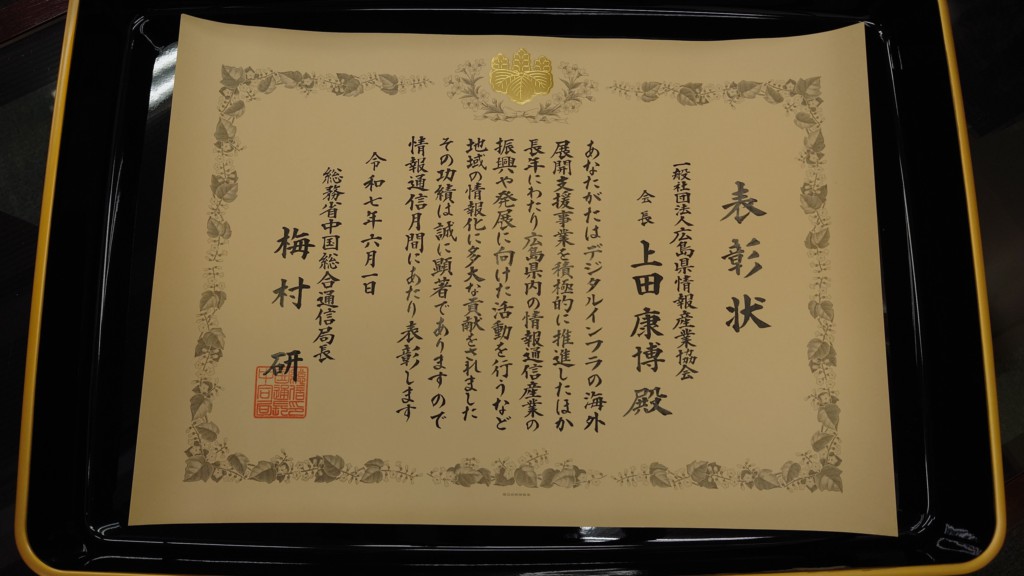 表彰状
一般社団法人広島県情報産業協会
会長 上田康博殿
あなたがたはデジタルインフラの海外
展開支援事業を積極的に推進したほか
長年にわたり広島県内の情報通信産業の
振興や発展に向けた活動を行うなど
地域の情報化に多大な貢献をされました
その功績は誠に顕著でありますので
情報通信月間にあたり表彰します
令和七年六月一日
総務省中国総合通信局長
梅村研